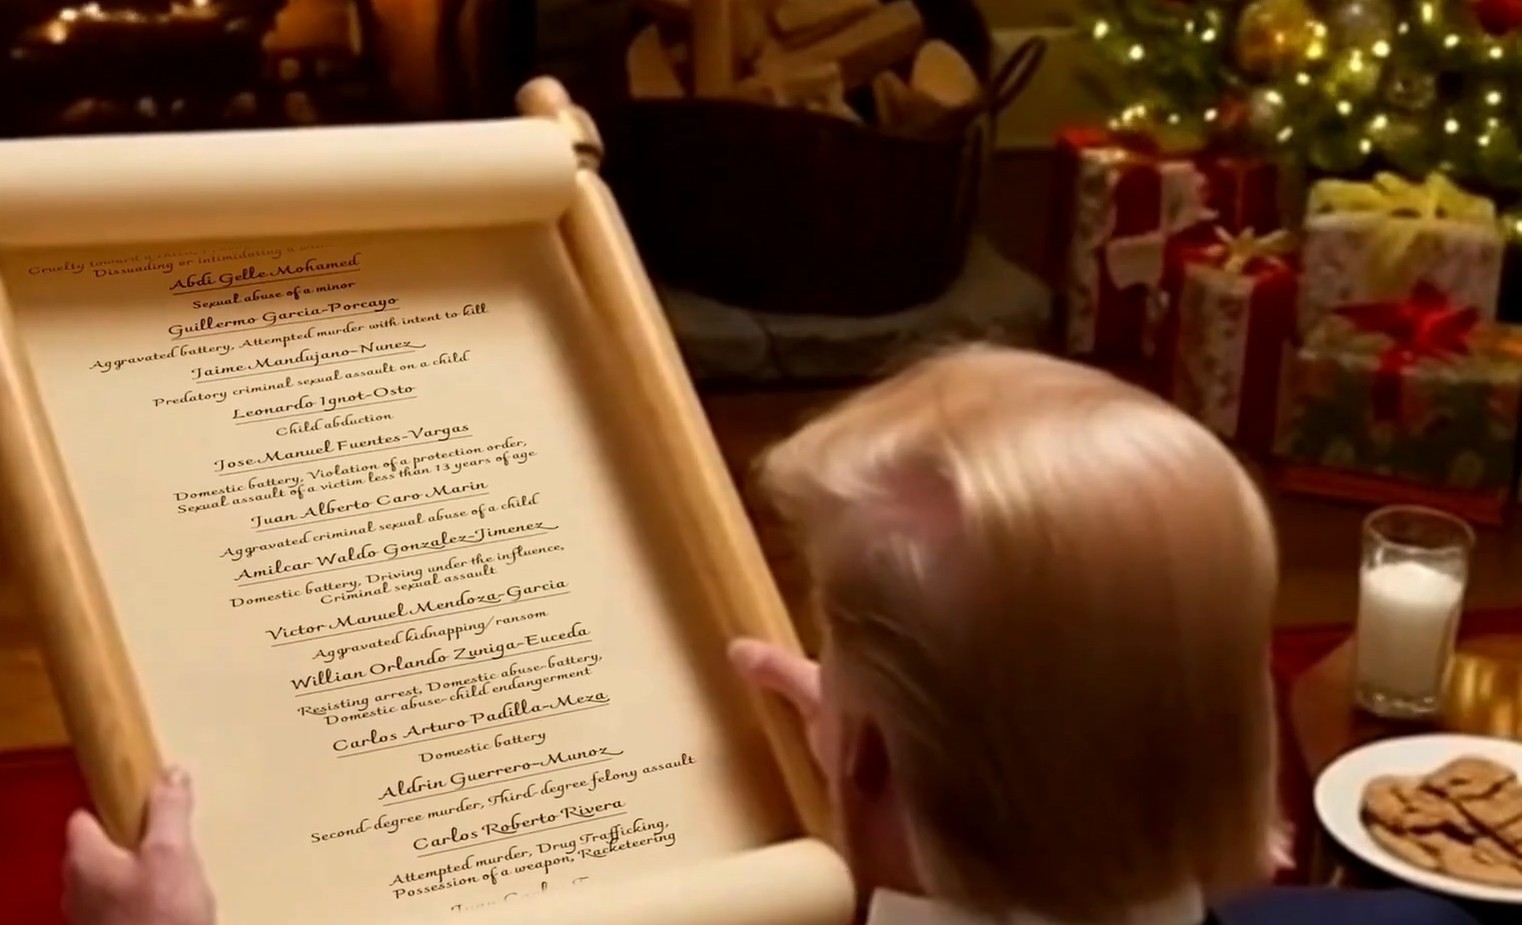 Cruelty toward a child
Dissuading or intimidating a
Abdi Gelle Mohamed
Sexual abuse of a minor
Guillermo Garcia-Porcayo
Aggravated battery, Attempted murder with intent to kill
Jaime Mandujano-Nunez
Predatory criminal sexual assault on a child
Leonardo Ignot-Osto
Child abduction
Jose Manuel Fuentes-Vargas
Domestic battery, Violation of a protection order,
Sexual assault of a victim less than 13 years of age
Juan Alberto Caro Marin
Aggravated criminal sexual abuse of a child
Amilcar Waldo Gonzalez-Jimenez
Domestic battery, Driving under the influence,
Criminal sexual assault
Victor Manuel Mendoza-Garcia
Aggravated kidnapping/ransom
Willian Orlando Zuniga-Euceda
Resisting arrest, Domestic abuse-battery,
Domestic abuse-child endangerment
Carlos Arturo Padilla-Meza
Domestic battery
Aldrin Guerrero-Munoz
Second-degree murder, Third-degree felony assault
Carlos Roberto Rivera
Attempted murder, Drug Trafficking,
Possession of a weapon, Racketeering